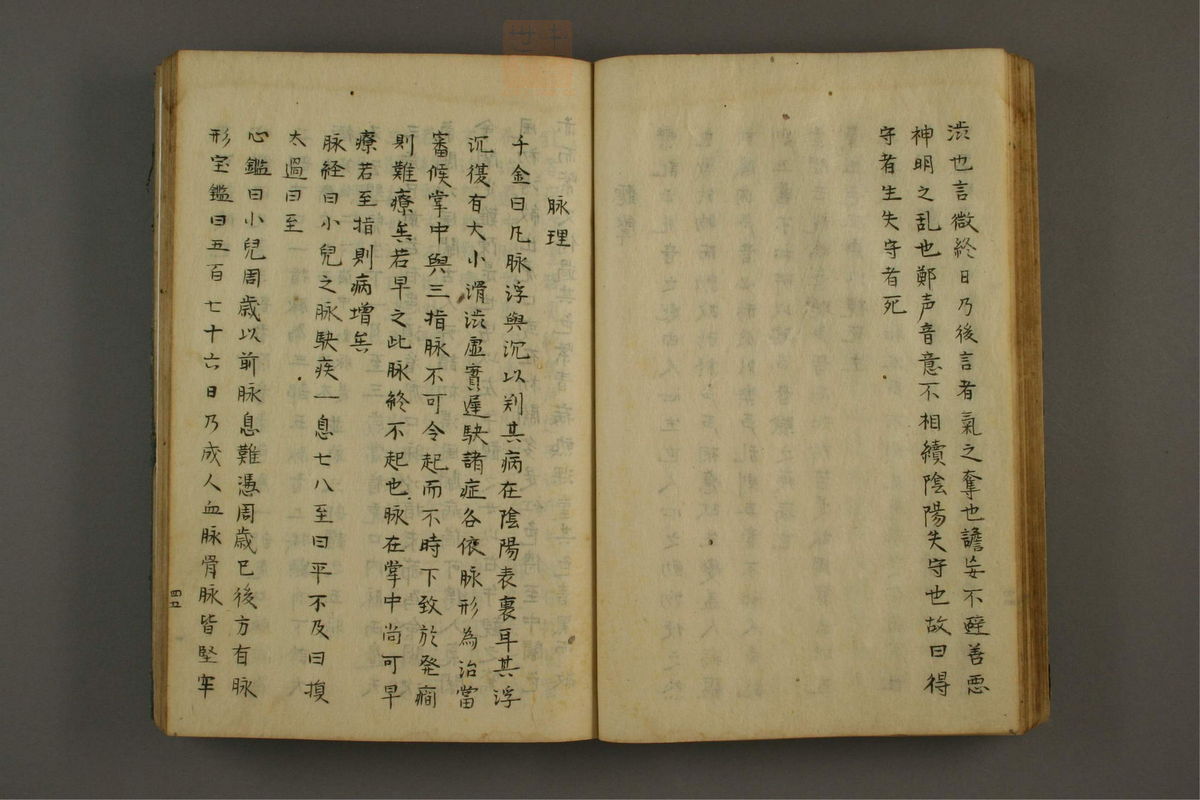 渋也言微終日乃後言者氣之奪也譫妄不避善悪
神明之乱也鄭声音意不相續陰陽失守也故曰得
守者生失守者死
脉理
千金曰凡脉浮與沉以判其病在陰陽表裏耳其浮
沉復有大小滑渋虚實遅駃諸症各依脉形為治當
審候掌中與三指脉不可令起而不時下致於発癇
則難療矣若早之此脉終不起也脉在掌中尚可早
療若至指則病增矣
脉経曰小兒之脉駃疾一息七八至曰平不及曰損
太過曰至
心鑑曰小兒周歳以前脉息難憑周歳已後方有脉
形宝鑑曰五百七十六日乃成人血脉骨脉皆堅牢
四五